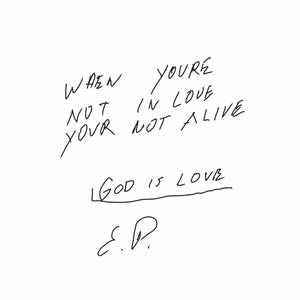 WHEN YOURE
NOT IN LOVE
YOUR NOT ALIVE
GOD IS LOVE
E.P.